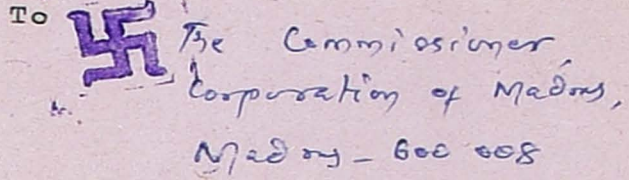 To The Commissioner,
Corporation of Madras,
Madras - 600 008